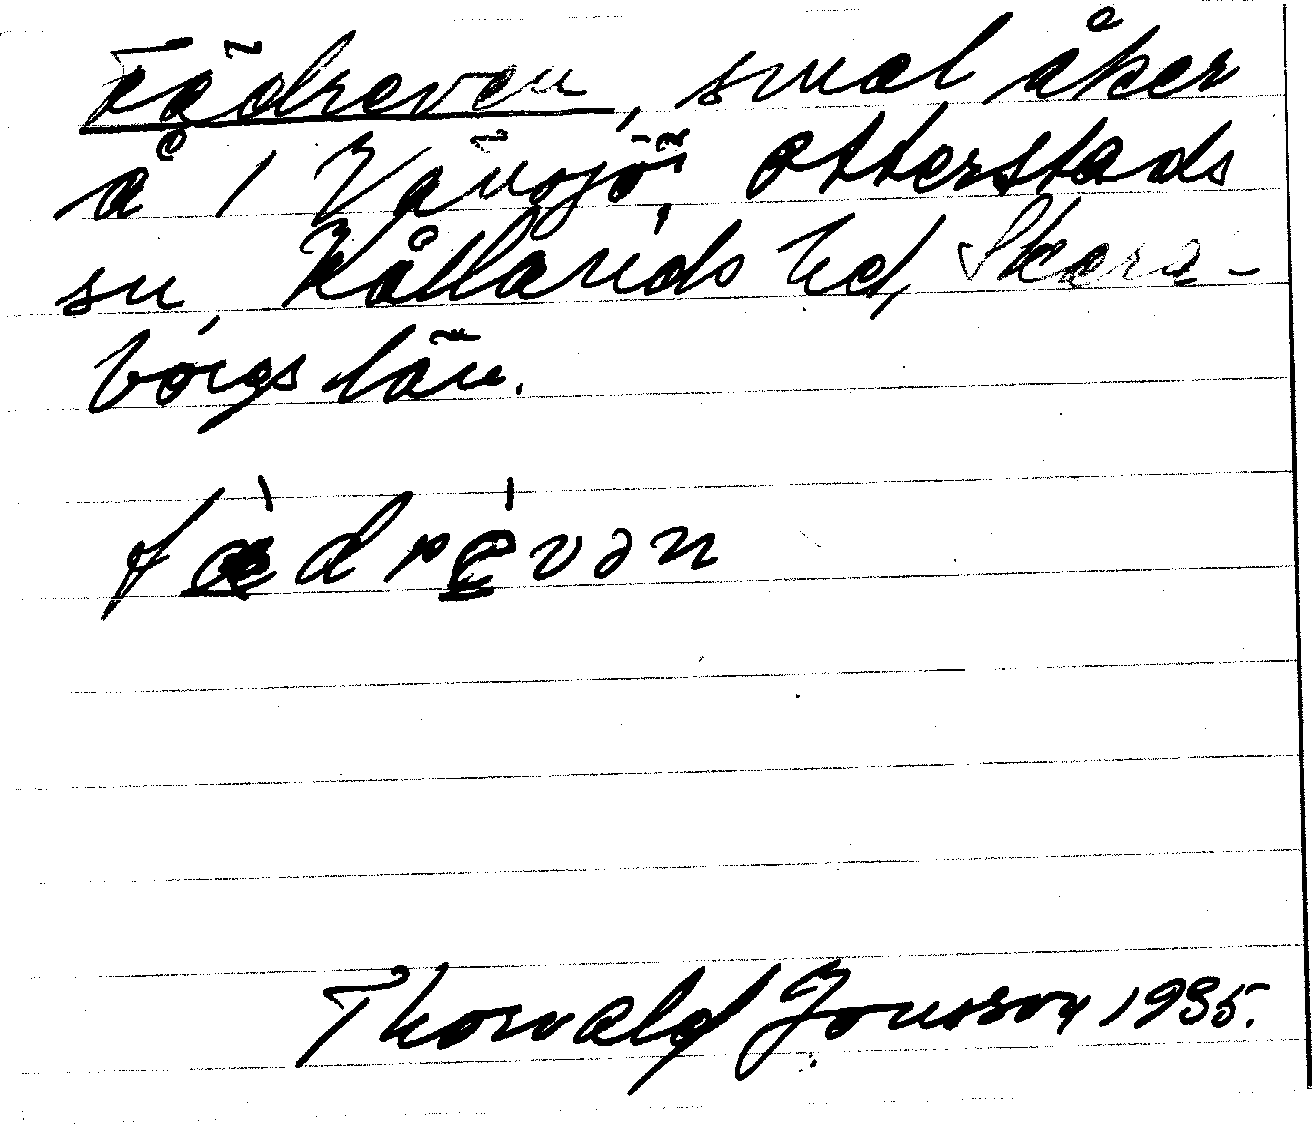 Fädreven, smal åker
å 1 Vänsjö, Otterstads
sn, Kållands hd, Skara-
borgs län.
fædrevən
Thorvald Jonsson 1935.